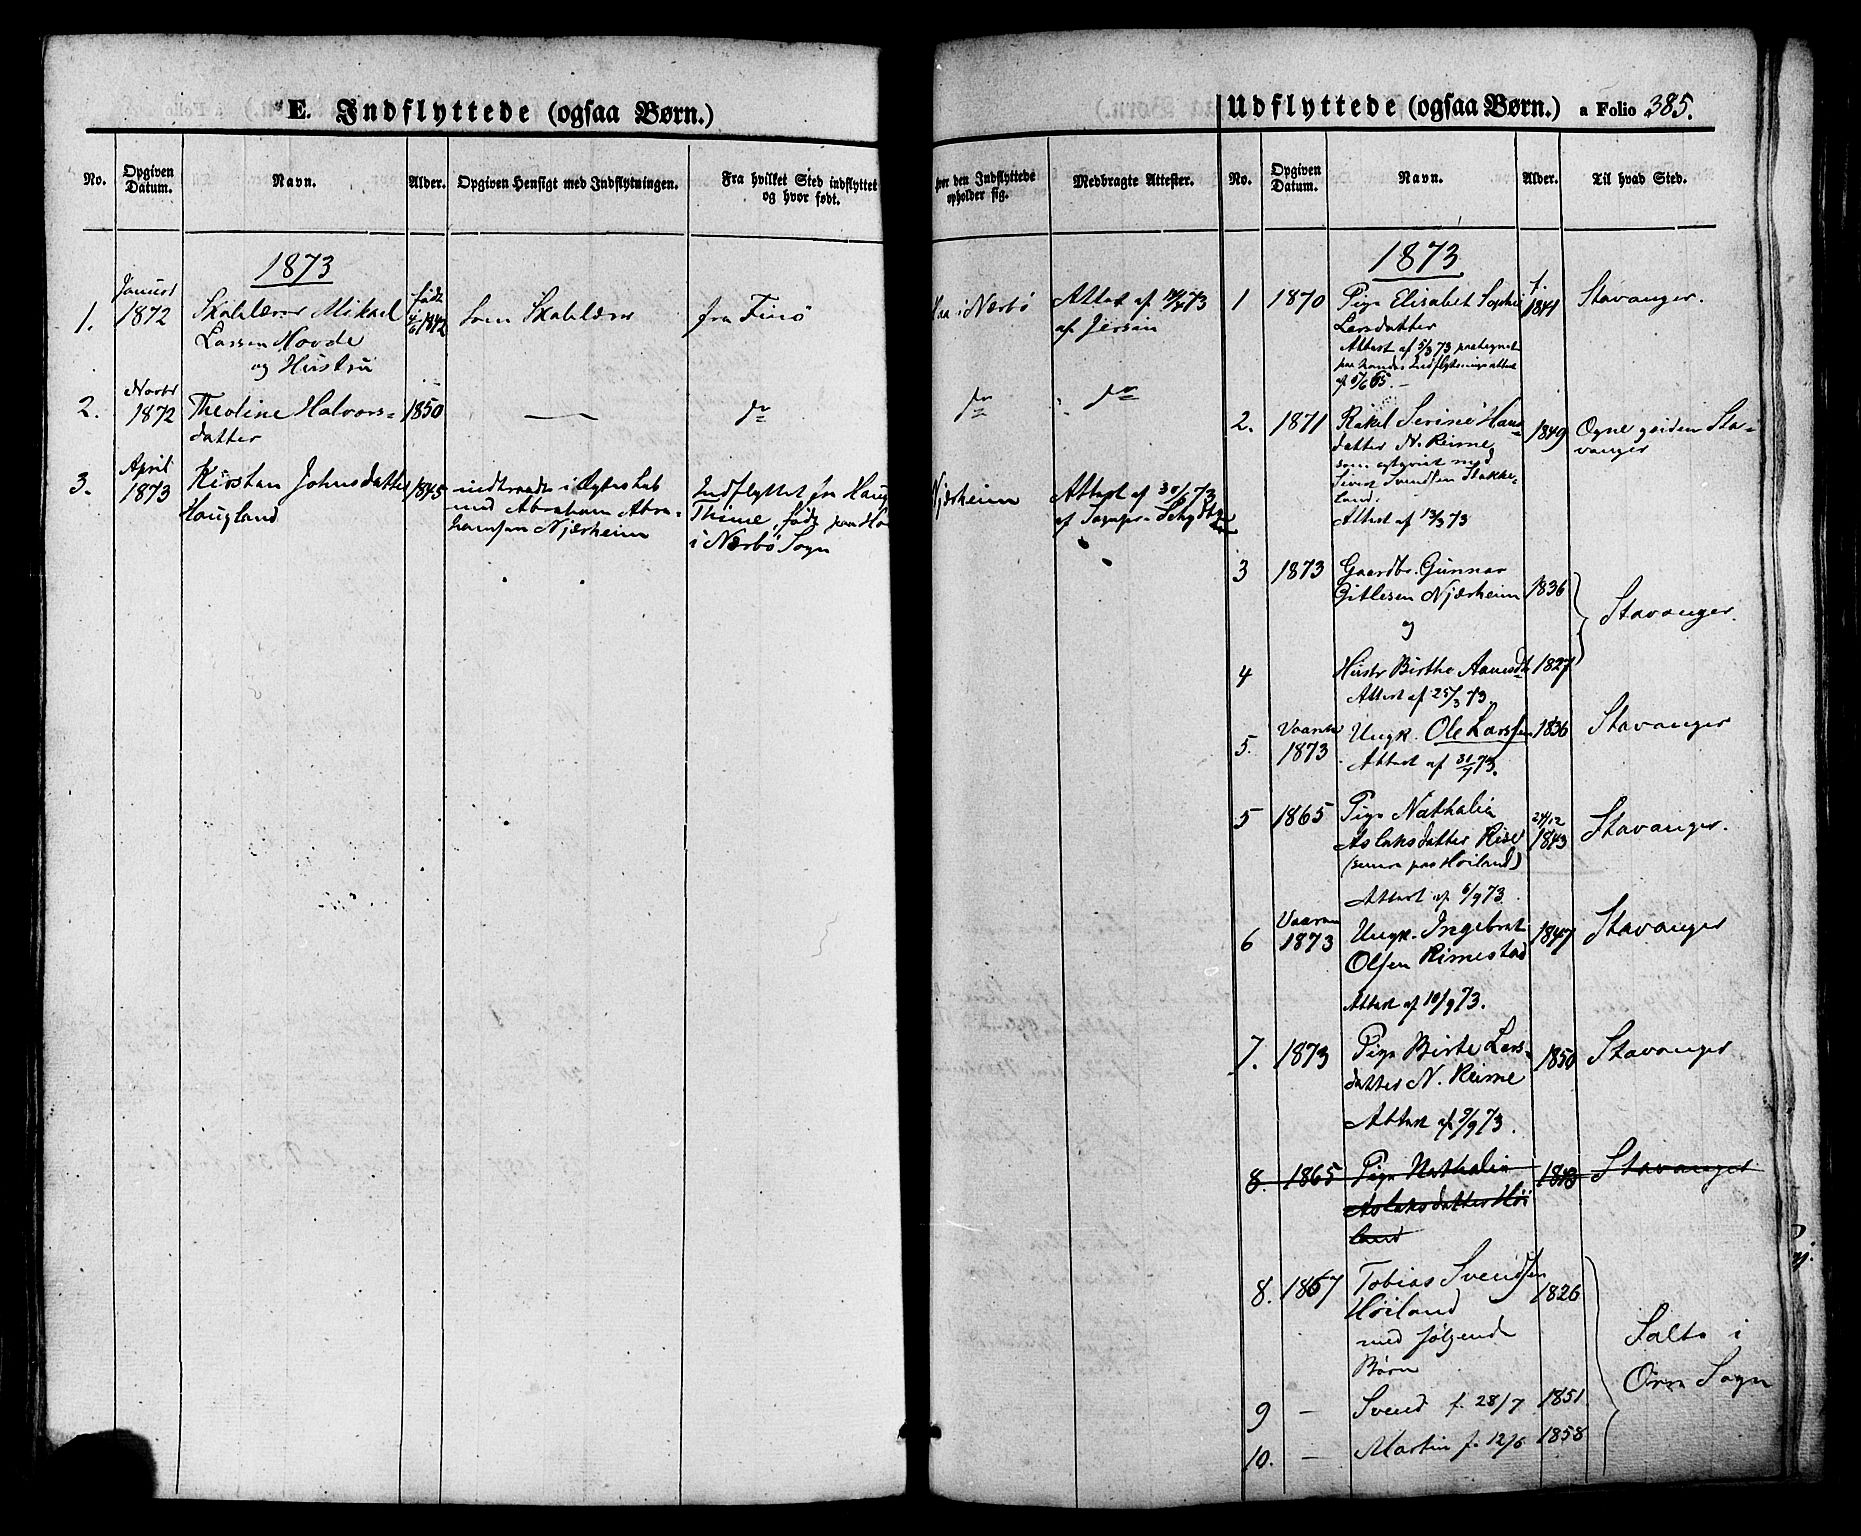 E. Indflyttede (ogsaa Børn.)
No.
Opgiven Datum.
Navn.
Alder.
Opgiven Hensigt med Indflytningen.
Fra hvilket Sted indflyttet
og hvor født.
hvor den Indflyttede
opholder sig.
Medbragte Attester.
1873
1. Januar 1872 Skolelærer Mikael født 1842 som Skolelærer fra Finö Haa i Nærbö Attest af /73
Lassen Hovde af Jersin
og Hustru
2. Novbr 1872 Theoline Halvors- 1850 — do do do
datter
3. April 1873 Kirsten Johnsdatter 1845 indtraadt i Ægteskab Indflyttet fra Haug Njærheim Attest af 30/6 73
Haugland med Abraham Abra- Thime, født paa Ha af Sognepr.
hamsen Njærheim i Nærbö Sogn
Udflyttede (ogsaa Børn.) a Folio 385.
No.
Opgiven Datum.
Navn.
Alder.
Til hvad Sted.
1873
1 1870 Pige Elisabet Sophie f. 1841 Stavanger.
Larsdatter
Attest af 5/3 73 paategnet
paa hendes Indflytningsattest
af 65. —
2. 1871 Rakel Serine Hans 1849 Ogne siden Sta-
datter N. Reime vanger
som med
Sivert Svendsen Stokke-
land.
Attest af 13/3 73
3 1873 Gaardbr. Gunnar
Gitlesen Njærheim 1836 Stavanger.
og
4 Hustr Birthe Aanesdt 1827
Attest af 25/3 73.
5. Vaaren 1873 Ungk. Ole Larssen 1836 Stavanger
Attest af 31/7 73.
5 1865 Pige Nathalia 24/12 1843 Stavanger.
Aslaksdatter
(senere paa Höiland)
Attest af 6/9 73.
6 Vaaren 1873 Ungk. Ingebret 1847 Stavanger
Olsen Rimestad
Attest af 10/9 73.
7. 1873 Pige Birte Lars- 1850 Stavanger
datter N. Reime
Attest af 9/9 73.
8. 1865 Pige Nathalia 1843 Stavanger
Aslaksdatter Höi
land
8. 1867 Tobias Svendsen 1826
Höiland
med følgende Salte i
Børn Örse Sogn
9 — Svend f. 28/7 1851.
10. — Martin f. 12/6 1858